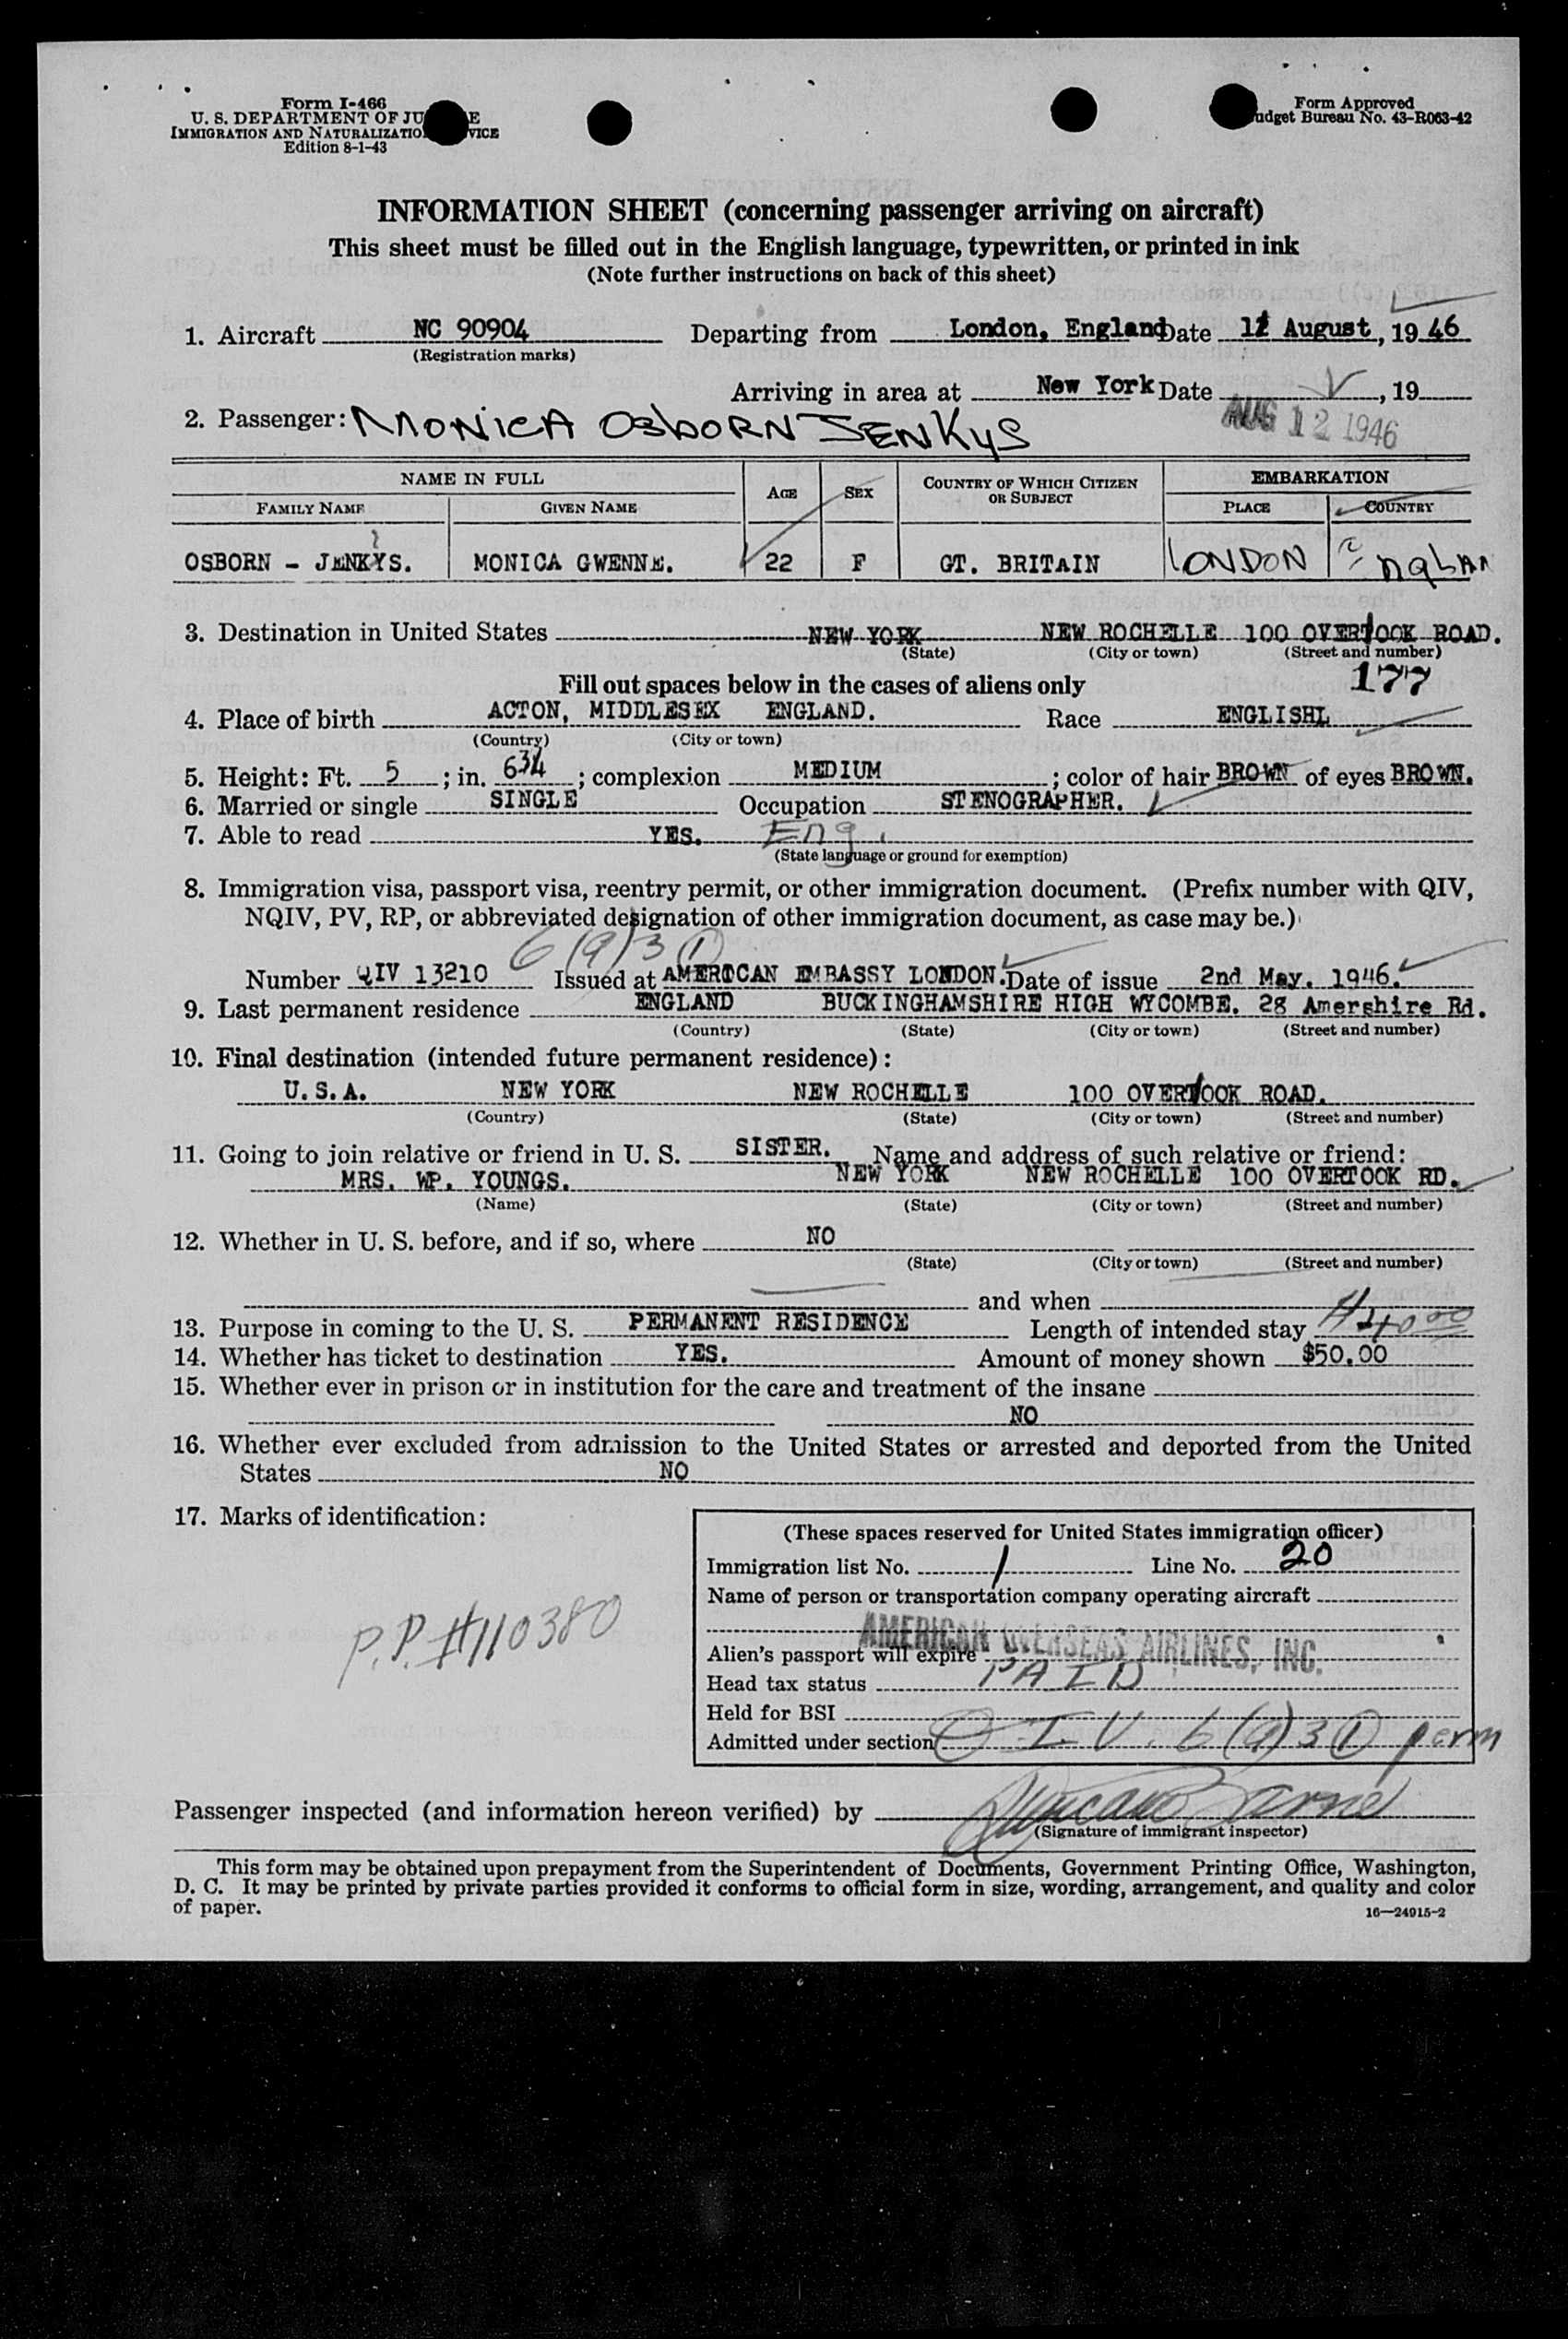 Form I-466
U. S. DEPARTMENT OF JU E
IMMIGRATION AND NATURALIZATIO VICE
Edition 8-1-43
Form Approved
udget Bureau No. 43-R063-42
INFORMATION SHEET (concerning passenger arriving on aircraft)
This sheet must be filled out in the English language, typewritten, or printed in ink
(Note further instructions on back of this sheet)
1. Aircraft NC 90904 Departing from London, England Date August, 19 46
(Registration marks)
Arriving in area at New York Date , 19
AUG 12 1946
2. Passenger: MONICA OSBORN JENKYS
NAME IN FULL AGE SEX COUNTRY OF WHICH CITIZEN OR SUBJECT EMBARKATION
FAMILY NAME GIVEN NAME PLACE COUNTRY
OSBORN - JENKYS. MONICA GWENNE. 22 F GT. BRITAIN LONDON
3. Destination in United States NEW YORK NEW ROCHELLE 100 OVERLOOK ROAD.
(State) (City or town) (Street and number)
177
Fill out spaces below in the cases of aliens only
4. Place of birth ACTON, MIDDLESEX ENGLAND. Race ENGLISHL
(Country) (City or town)
5. Height: Ft. 5 ; in. 63/4 ; complexion MEDIUM ; color of hair BROWN of eyes BROWN.
6. Married or single SINGLE Occupation STENOGRAPHER.
7. Able to read YES. Eng.
(State language or ground for exemption)
8. Immigration visa, passport visa, reentry permit, or other immigration document. (Prefix number with QIV,
NQIV, PV, RP, or abbreviated designation of other immigration document, as case may be.)
6(a)3 (1)
Number QIV 13210 Issued at AMERICAN EMBASSY LONDON. Date of issue 2nd May. 1946.
9. Last permanent residence ENGLAND BUCKINGHAMSHIRE HIGH WYCOMBE. 28 Amershire Rd.
(Country) (State) (City or town) (Street and number)
10. Final destination (intended future permanent residence):
U.S.A. NEW YORK NEW ROCHELLE 100 OVERLOOK ROAD.
(Country) (State) (City or town) (Street and number)
11. Going to join relative or friend in U. S. SISTER. Name and address of such relative or friend:
MRS. WP. YOUNGS. NEW YORK NEW ROCHELLE 100 OVERTOOK RD.
(Name) (State) (City or town) (Street and number)
12. Whether in U. S. before, and if so, where NO
(State) (City or town) (Street and number)
and when
13. Purpose in coming to the U. S. PERMANENT RESIDENCE Length of intended stay
14. Whether has ticket to destination YES. Amount of money shown $50.00
15. Whether ever in prison or in institution for the care and treatment of the insane
NO
16. Whether ever excluded from admission to the United States or arrested and deported from the United
States NO
17. Marks of identification:
P.P. #110380
(These spaces reserved for United States immigration officer)
Immigration list No. 1 Line No. 20
Name of person or transportation company operating aircraft
AMERICAN OVERSEAS AIRLINES, INC.
Alien's passport will expire
Head tax status PAID
Held for BSI
Admitted under section Q I V. 6(a)3 (1) perm
Passenger inspected (and information hereon verified) by
(Signature of immigrant inspector)
This form may be obtained upon prepayment from the Superintendent of Documents, Government Printing Office, Washington,
D. C. It may be printed by private parties provided it conforms to official form in size, wording, arrangement, and quality and color
of paper.
16—24915-2